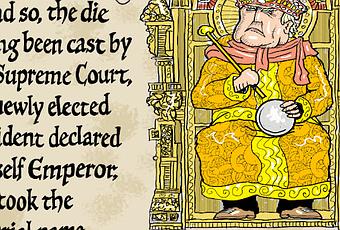 nd so, the die
ng been cast by
Supreme Court,
newly elected
ident declared
self Emperor;
took the